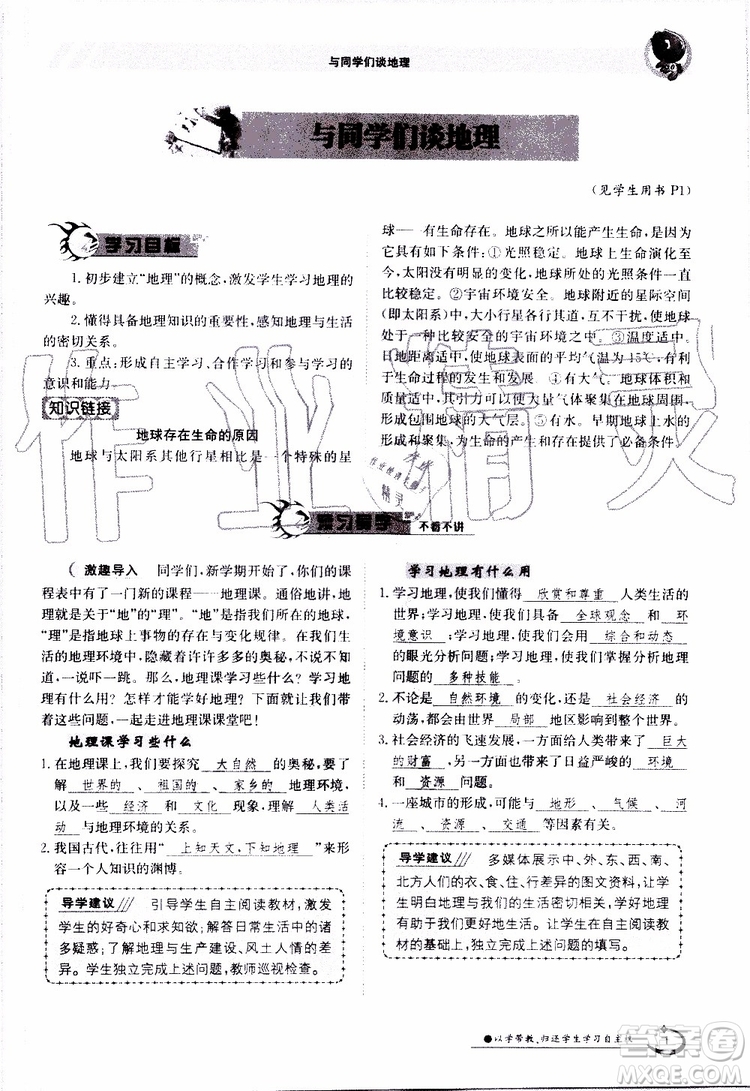 与同学们谈地理
与同学们谈地理
(见学生用书 P1)
学习目标
1. 初步建立“地理”的概念,激发学生学习地理的
兴趣。
2. 懂得具备地理知识的重要性,感知地理与生活
的密切关系。
3. 重点:形成自主学习、合作学习和参与学习的
意识和能力。
知识链接
地球存在生命的原因
地球与太阳系其他行星相比是一个特殊的星
球——有生命存在。地球之所以能产生生命,是因为
它具有如下条件:①光照稳定。地球上生命诞生至
今,太阳没有明显的变化,地球所处的光照条件一直
比较稳定。②宇宙环境安全。地球附近的星际空间
(即太阳系),大小行星各行其道,互不干扰,使地球
处于一种比较安全的宇宙环境之中。③温度适中。
日地距离适中,使地球表面的平均气温为 15℃,有利
于生命过程的发生和发展。④有大气。地球的体积
和质量适中,其引力可以使大量气体聚集在地球周围,
形成包围地球的大气层。⑤有水。早期地球上水的
形成和聚集,为生命的存在提供了必备条件。
预习导学
不看不讲
激趣导入 同学们,新学期开始了,你们的课
程表中有了一门新的课程——地理课。通俗地讲,地
理就是关于“地”的“理”。“地”是指我们所在的地球,
“理”是指地球上事物的存在与变化规律。在我们周
围的地理环境中,隐藏着许许多多的奥秘,不说不知
道,一说吓一跳。那么,地理课学习些什么?学习地
理有什么用?怎样才能学好地理?就让我们大家带
着这些问题,一起来走进地理课课堂吧!
地理课学习些什么
1. 在地理课上,我们要探究 大自然 的奥秘,要了
解 世界的 、 祖国的 、 家乡的 地理环境,
以及一些 经济 和 文化 现象,理解 人类活
动 与地理环境的关系。
2. 我国古代,往往用“ 上知天文,下知地理 ”来形
容一个人知识的渊博。
导学建议 引导学生自主阅读教材,激发
学生的好奇心和求知欲;解答日常生活中的诸
多疑惑;了解地理与生产建设、风土人情的差
异。学生独立完成上述问题,教师巡视检查。
学习地理有什么用
1. 学习地理,使我们懂得 欣赏和尊重 人类生活的
世界;学习地理,使我们具备 全球观念 和 环
境意识 ;学习地理,使我们学会用 综合和动态
的眼光分析问题;学习地理,使我们掌握分析地理
问题的 多种技能 。
2. 不论是 自然环境 的变化,还是 社会经济 的
动荡,都由世界 局部 地区影响到世界各地。
3. 社会经济的飞速发展,一方面给人类带来了 巨大
的财富 ;另一方面也带来了日益严峻的 环境
和 资源 问题。
4. 一座城市的形成,可能与 地形 、 气候 、 河
流 、 资源 、 交通 等众多的因素有关。
导学建议 多媒体展示中、外、东、西、南、
北方人们的衣、食、住、行差异的图文资料,让学
生明白地理与生活的密切相关,学好地理知识
有助于更好地生活。让学生在自主阅读教
材的基础上,独立完成上述问题的填写。
●以学带教,归还学生学习自主权
1
作业精灵
答案圈
MXQE.COM